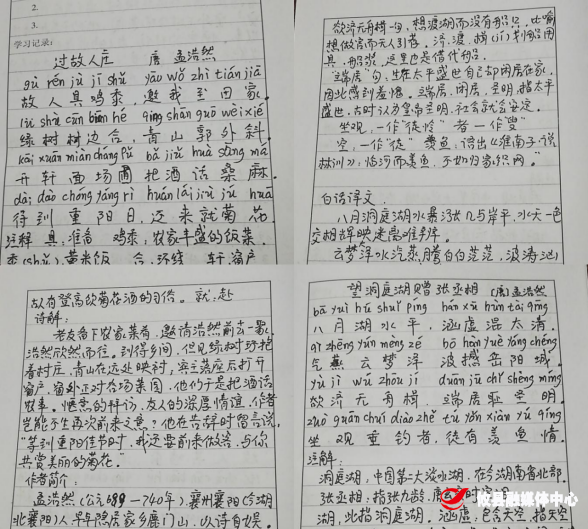 2.
3.
学习记录:
过故人庄 唐 孟浩然
gù rén jù jī shǔ yāo wǒ zhì tián jiā
故人具鸡黍,邀我至田家。
lǜ shù cūn biān hé qīng shān guō wài xié
绿树村边合,青山郭外斜。
kāi xuān miàn cháng pǔ bǎ jiǔ huà sāng má
开轩面场圃,把酒话桑麻。
dài dào chóng yáng rì huán lái jiù jú huā
待到重阳日,还来就菊花。
注解 具:准备 鸡黍:农家丰盛的饭菜。
黍(shǔ):黄米饭 合:环绕 轩:窗户
欲济无舟楫一句,想渡湖而没有船只,比喻
想做官而无人引荐。济:渡,楫(jí)划船用
具,船桨,这里也是借代船。
端居句:生在太平盛世自己却闲居在家,
因此感到羞愧。端居:闲居,圣明:指太平
盛世,古时认为皇帝圣明,社会就会安定。
坐观,一作"徒怜" 者一作"叟"
空,一作"徒" 羡鱼:语出《淮南子·说
林训》:临河而羡鱼,不如归家织网。
白话译文:
八月洞庭湖水暴涨几与岸平,水天一色
交相辉映迷离难辨。
云梦泽水汽蒸腾白白茫茫,波涛汹
故有登高饮菊花酒的习俗。 就:赴
诗解:
老友备下农家菜肴,邀请浩然前去一聚。
浩然欣然而往。到得乡间,但见绿树环抱
着村庄,青山在远处映衬,宾主落座后打开
窗户,窗外正对农场菜园,他们于是把酒话
农事。惬意的拜访,友人的深厚情谊,作者
岂能不生再次前来之意。他在告辞时留言说
"等到重阳佳节时,我还要前来做客,与你
共赏美丽的菊花"
作者简介:
孟浩然(公元689—740年),襄州襄阳(今湖
北襄阳)人,早年隐居家乡鹿门山,以诗自娱。
望洞庭湖赠张丞相 (唐)孟浩然
bā yuè hú shuǐ píng hán xū hùn tài qīng
八月湖水平,涵虚混太清。
qì zhēng yún mèng zé bō hàn yuè yáng chéng
气蒸云梦泽,波撼岳阳城。
yù jì wú zhōu jí duān jū chǐ shèng míng
欲济无舟楫,端居耻圣明。
zuò guān chuí diào zhě tú yǒu xiàn yú qíng
坐观垂钓者,徒有羡鱼情。
注解:
洞庭湖:中国第二大淡水湖,在今湖南省北部。
张丞相:指张九龄,唐玄宗时宰相
湖:此指洞庭湖。涵虚:包含天空,指天空
攸县融媒体中心